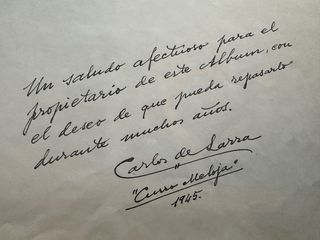 Un saludo afectuoso para el
propietario de este Album, con
el deseo de que pueda repasarlo
durante muchos años.
Carlos de Larra
"Curro Meloja"
1945.